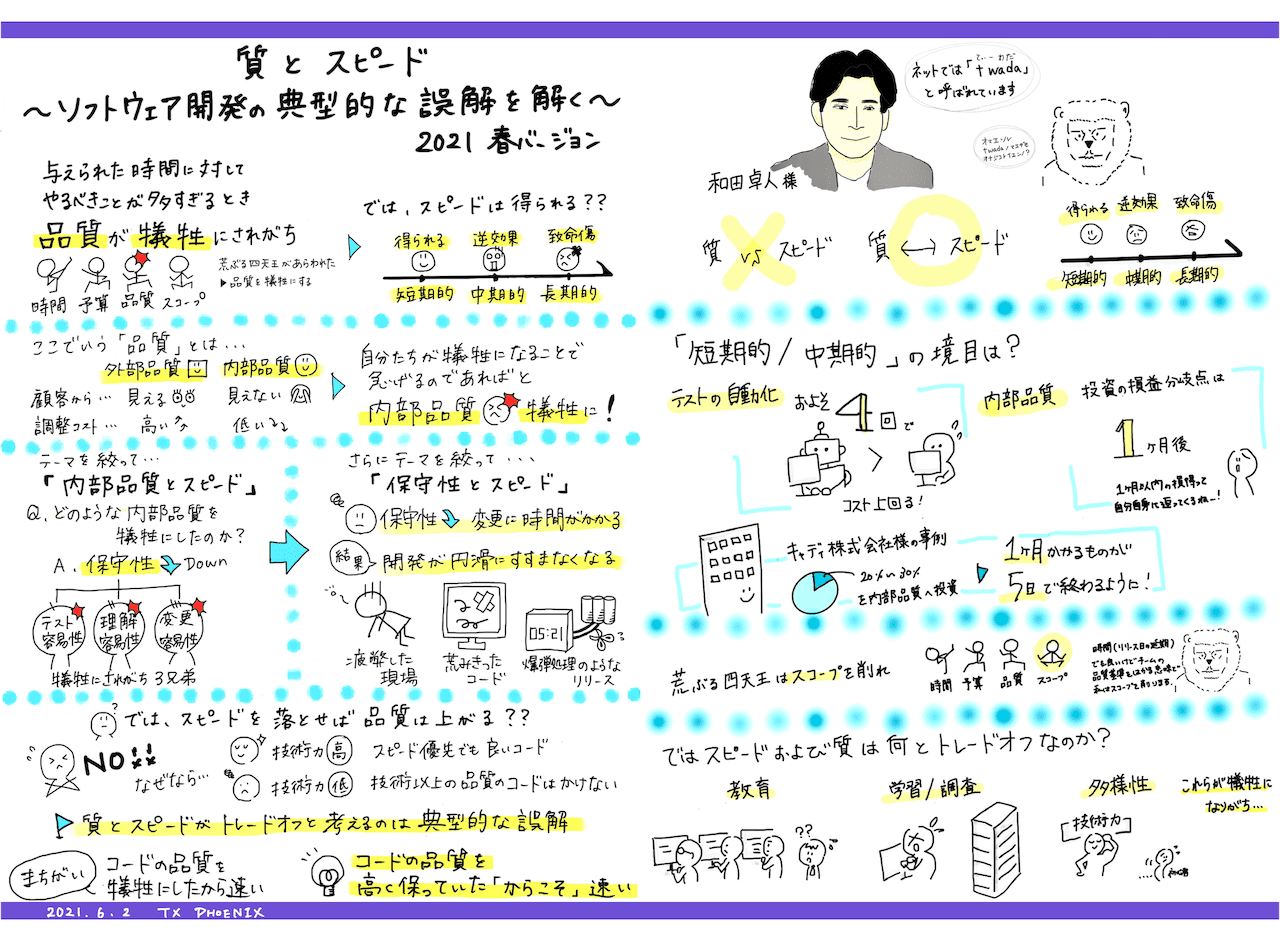 質とスピード
〜ソフトウェア開発の典型的な誤解を解く〜
2021 春バージョン
与えられた時間に対して
やるべきことが多すぎるとき
品質が犠牲にされがち
時間 予算 品質 スコープ
荒ぶる四天王があらわれた
▶品質を犠牲にする
では、スピードは得られる??
得られる 逆効果 致命傷
短期的 中期的 長期的
ここでいう「品質」とは・・・
外部品質 内部品質
顧客から… 見える 見えない
調整コスト… 高い 低い
自分たちが犠牲になることで
急げるのであればと
内部品質 犠牲に!
テーマを絞って…
「内部品質とスピード」
Q.どのような内部品質を
犠牲にしたのか?
A.保守性 Down
テスト容易性
理解容易性
変更容易性
犠牲にされがち3兄弟
さらにテーマを絞って・・・
「保守性とスピード」
保守性 変更に時間がかかる
結果 開発が円滑にすすまなくなる
疲弊した
現場
荒みきった
コード
05:21
爆弾処理のような
リリース
?
では、スピードを落とせば品質は上がる??
NO!!
なぜなら…
技術力 高 スピード優先でも良いコード
技術力 低 技術以上の品質のコードはかけない
質とスピードがトレードオフと考えるのは典型的な誤解
まちがい
コードの品質を
犠牲にしたから速い
コードの品質を
高く保っていた「からこそ」速い
2021.6.2 TX PHOENIX
和田卓人様
ネットでは「twada」
てぃーわだ
と呼ばれています
質 vs スピード
質 ⟷ スピード
得られる 逆効果 致命傷
短期的 中期的 長期的
「短期的/中期的」の境目は?
テストの自動化
およそ4回で
コスト上回る!
内部品質 投資の損益分岐点は
1ヶ月後
1ヶ月以内の損得って
自分自身に返ってくるねー!
キャディ株式会社様の事例
20%〜30%
を内部品質へ投資
1ヶ月かかるものが
5日で終わるように!
荒ぶる四天王はスコープを削れ
時間 予算 品質 スコープ
時間(リリース日の延期)
でも良いけどチームの
品質基準をはかる意味で
私はスコープを削ります。
ではスピードおよび質は何とトレードオフなのか?
教育
学習/調査
多様性
これらが犠牲に
なりがち…
??
技術力